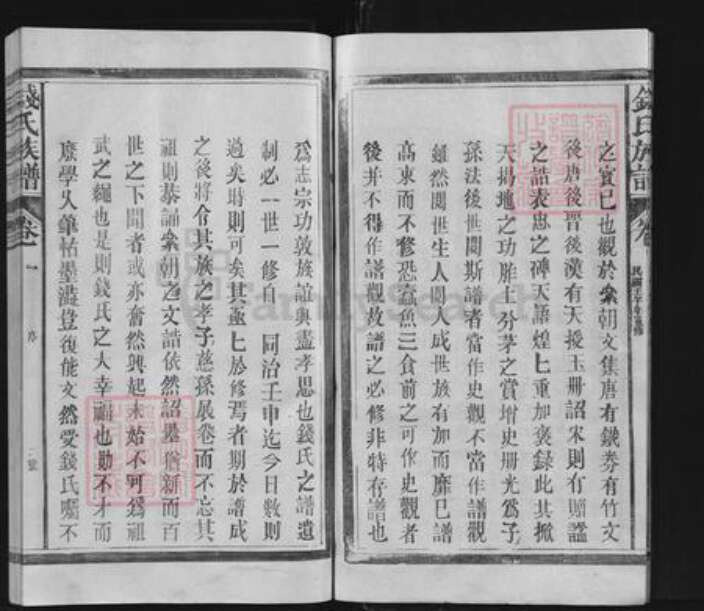 錢氏族譜 卷
民國
之實已也觀於象朝文集唐有鐵券有竹文
後唐後晉後漢有天授玉冊詔宋則有贈謚
之誥表忠之碑天語煌〻重加褒錄此其掀
天揭地之功胙土分茅之賞增史冊光爲子
孫法後世閱斯譜者當作史觀不當作譜觀
雖然閱世生人閱人成世族有加而靡已譜
高束而不修恐蠹魚三食前之可作史觀者
後并不得作譜觀故譜之必修非特存譜也
爲志宗功敦族誼與盡孝思也錢氏之譜遺
制必一世一修自 同治壬申迄今日數則
過矣時則可矣其亟〻於修焉者期於譜成
之後將令其族之孝子慈孫展卷而不忘其
祖則恭誦象朝之文誥依然詔墨猶新而百
世之下聞者或亦奮然興起未始不可爲祖
武之繩也是則錢氏之人幸福也勛不才而
廢學久筆枯墨澁豈復能文然受錢氏囑不
錢氏族譜 卷一 序
FamilySearch